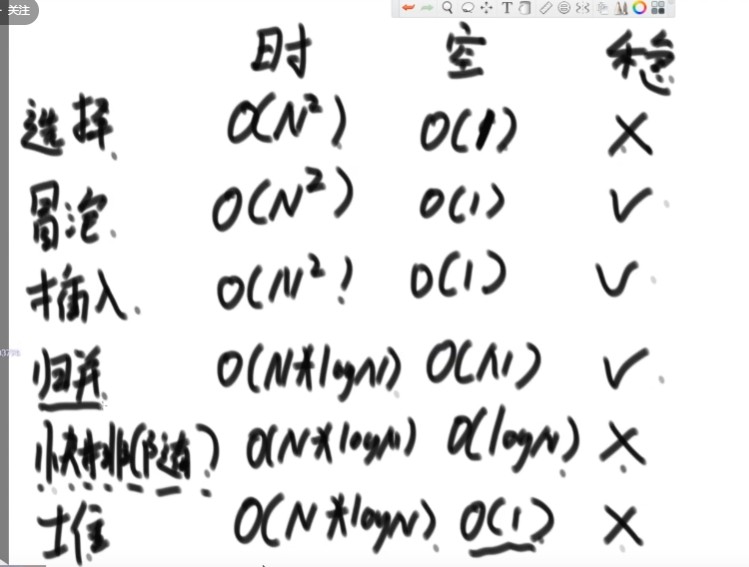 关注
T
时 空 稳
选择 O(N²) O(1) ×
冒泡 O(N²) O(1) √
插入 O(N²) O(1) √
归并 O(N*logN) O(N) √
快排(随) O(N*logN) O(logN) ×
堆 O(N*logN) O(1) ×